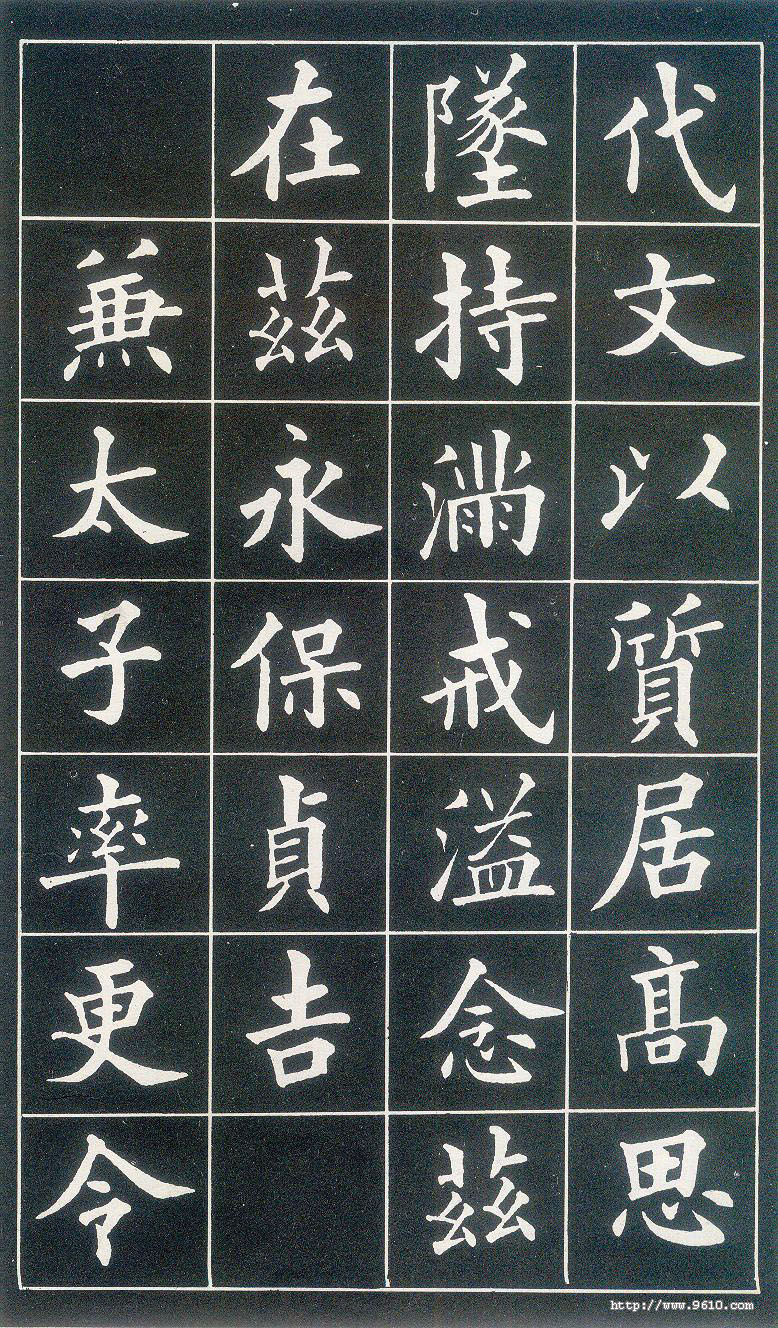 代文以質居高思
墜持滿戒溢念茲
在茲永保貞吉
兼太子率更令
http://www.9610.com